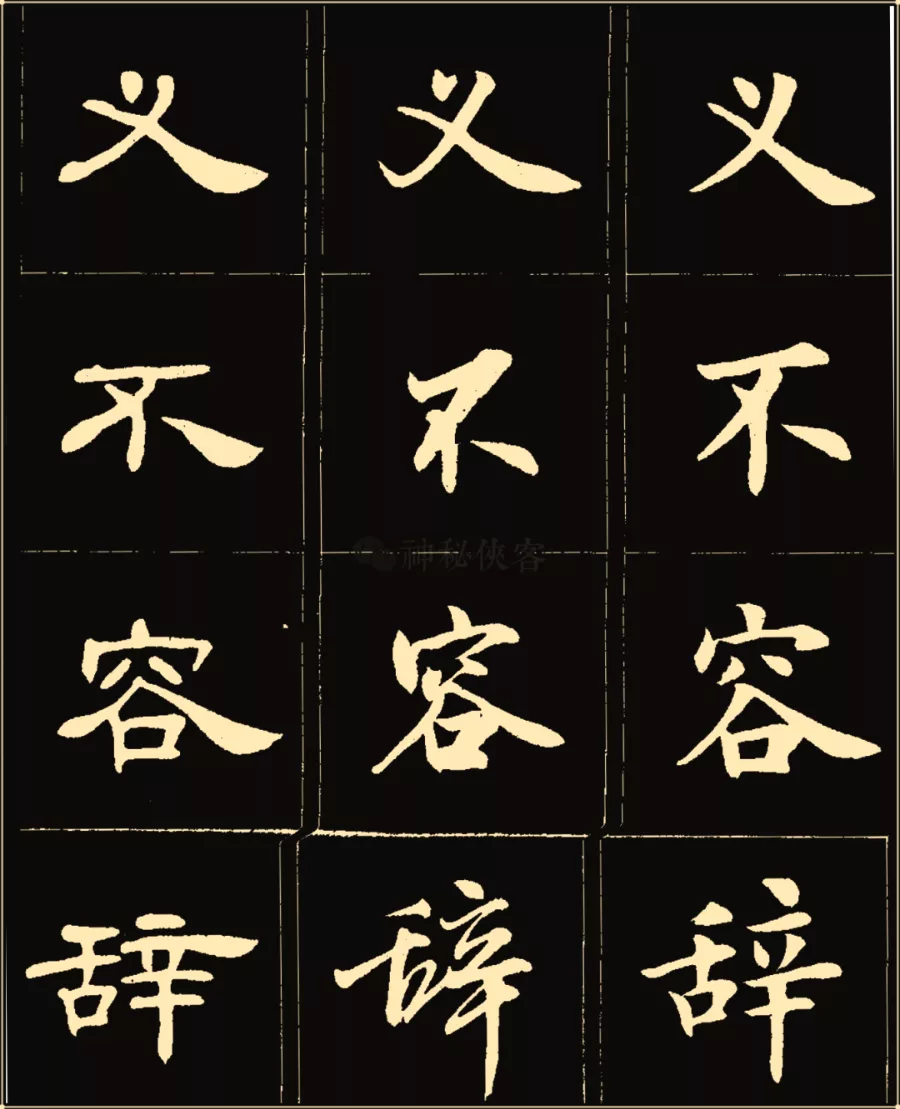 义 义 义
不 不 不
容 容 容
辞 辞 辞
神秘侠客